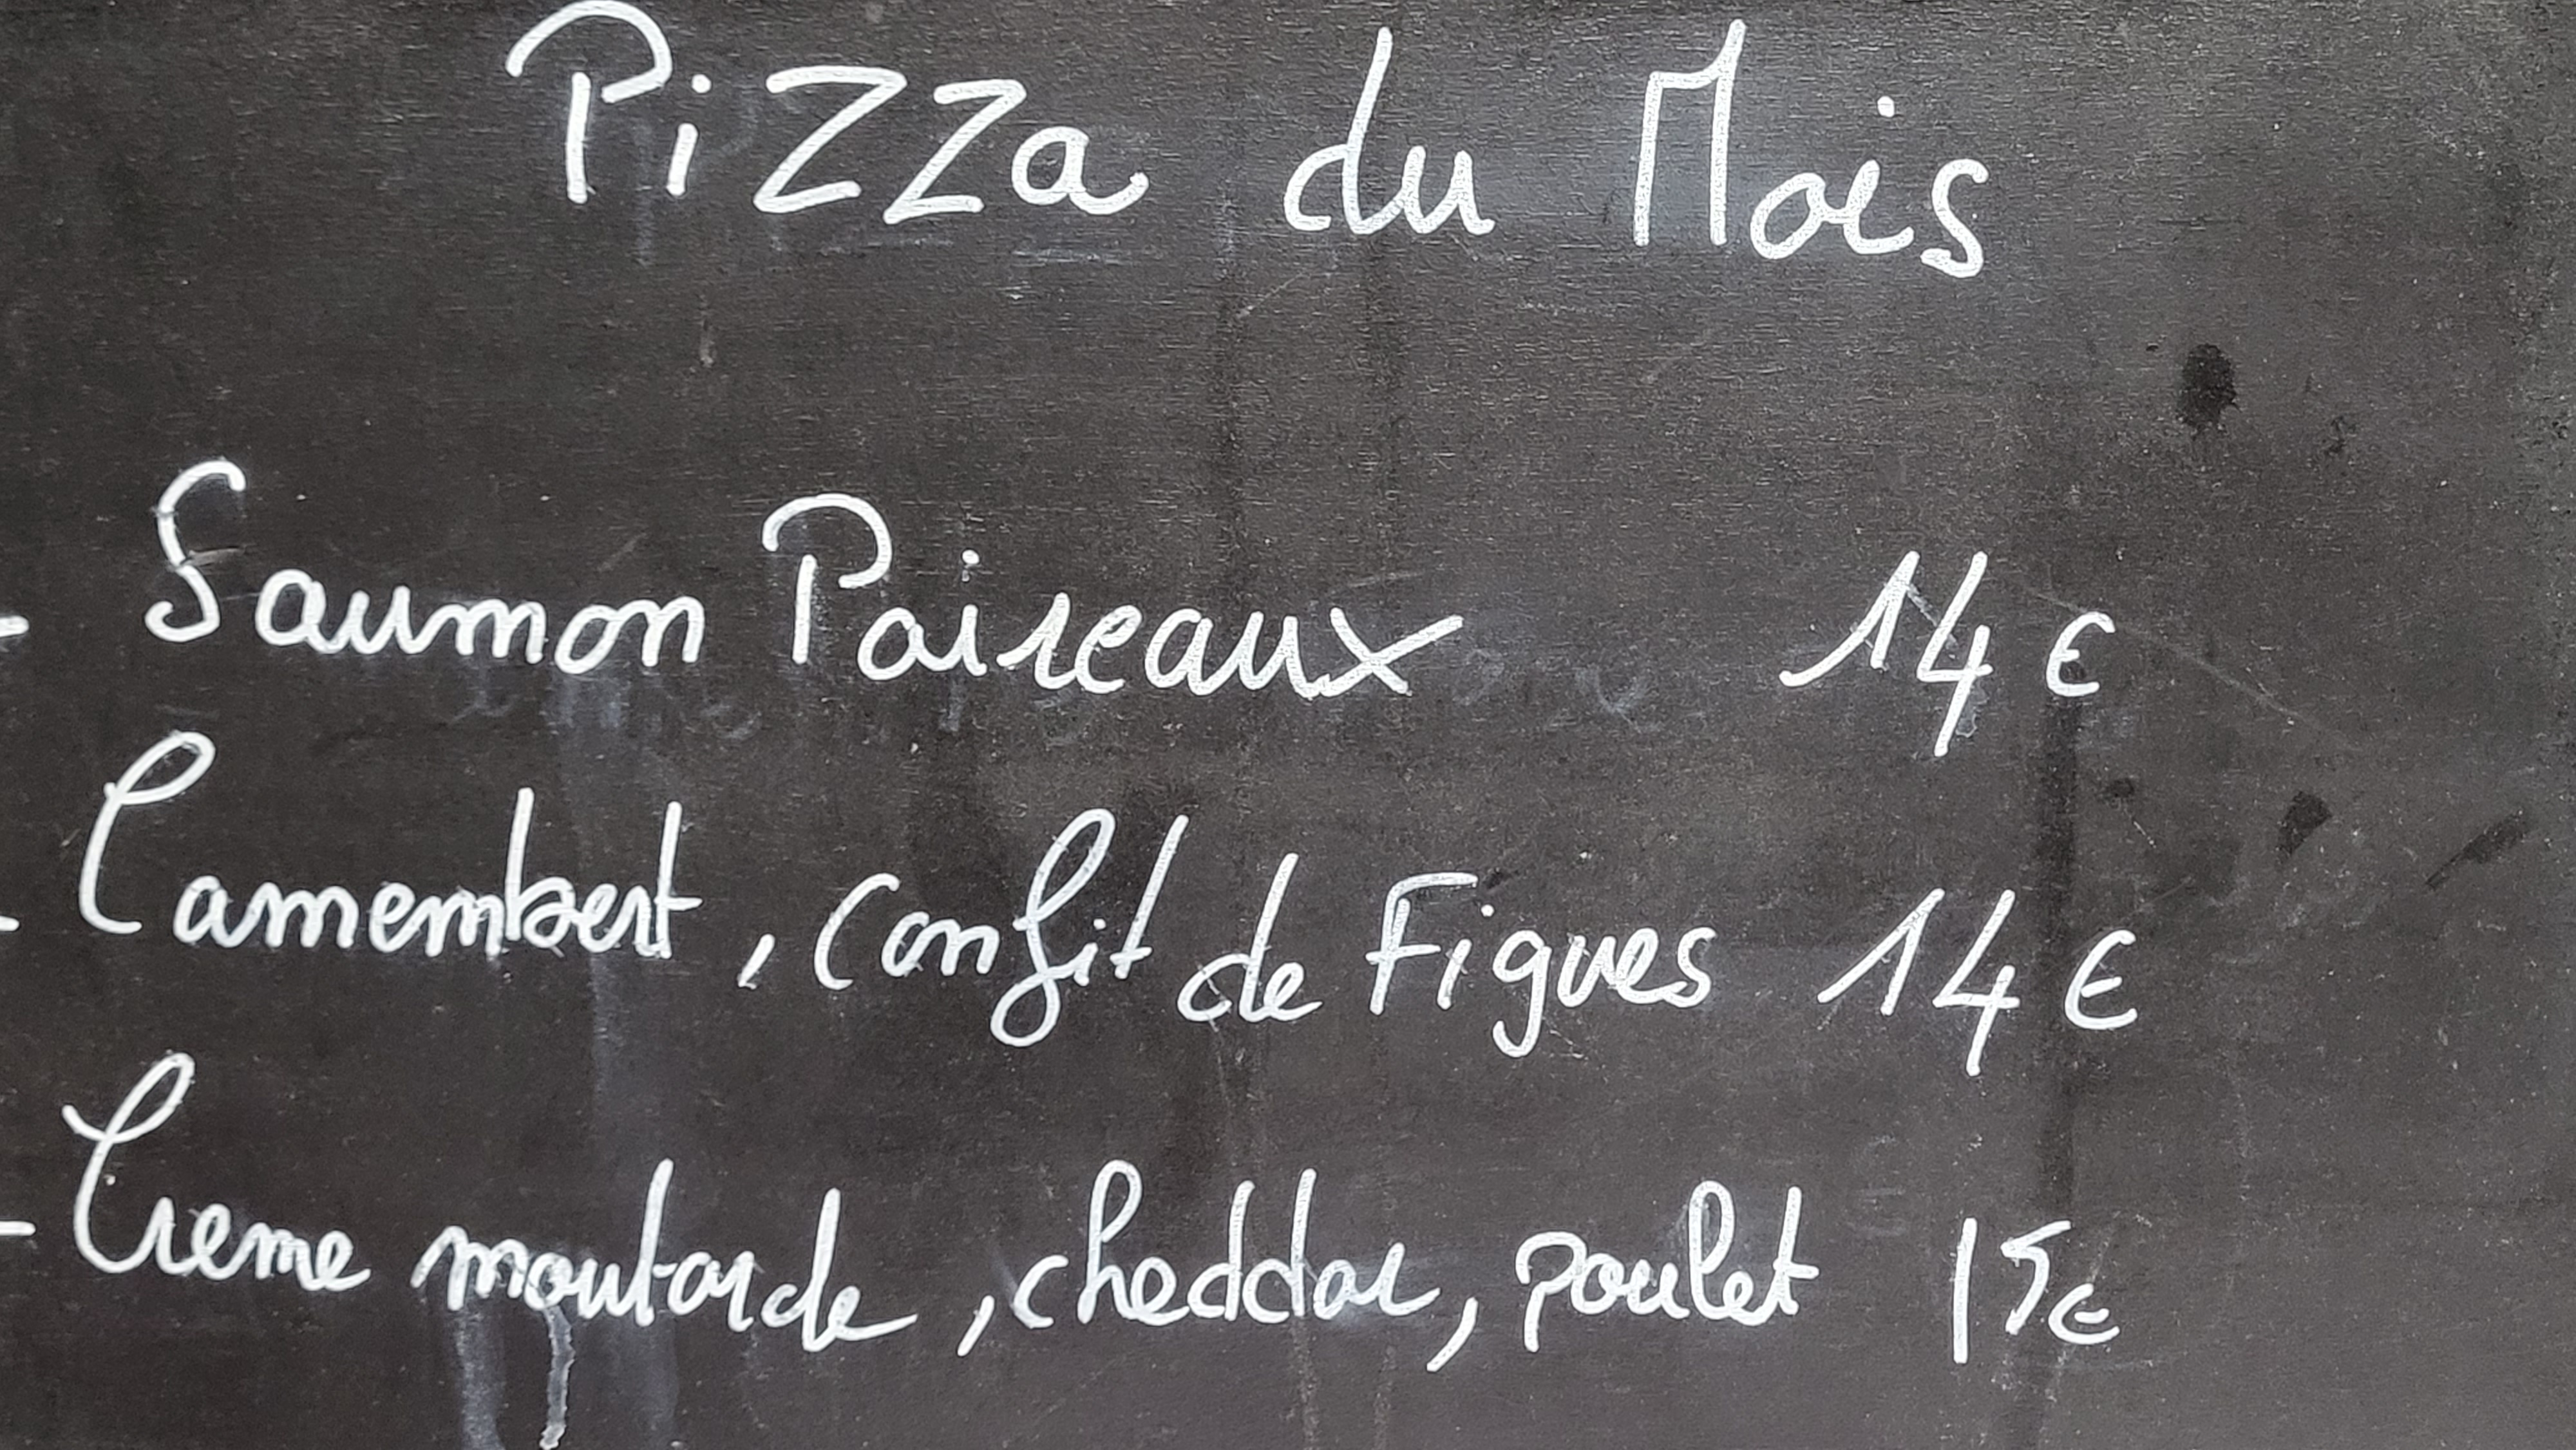 Pizza du Mois
- Saumon Poireaux 14 €
- Camembert, confit de Figues 14 €
- Creme moutarde, cheddar, poulet 15€